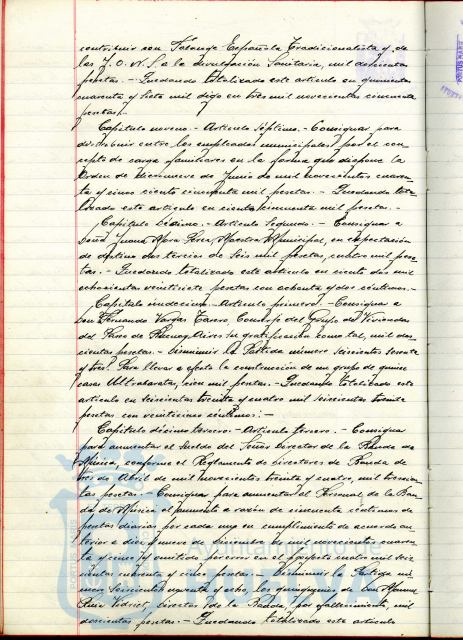 contribuir con Falange Española Tradicionalista y de
las J.O.N.S. a la divulgación Sanitaria, mil doscientas
pesetas. - Quedando totalizado este artículo en quinientas
cuarenta y siete mil digo en tres mil novecientas cincuenta
pesetas.
Capítulo noveno. - Artículo Séptimo. - Consignar para
distribuir entre los empleados municipales por el con
cepto de carga familiares en la forma que dispone la
Orden de diecinueve de Junio de mil novecientos cuaren
ta y cinco ciento cincuenta mil pesetas. - Quedando tota
lizado este artículo en ciento cincuenta mil pesetas. -
Capítulo Décimo. - Artículo Segundo. - Consignar a
Doña Juana Mora Maestra Municipal, en expectación
de destino dos tercios de seis mil pesetas, cuatro mil pese
tas. - Quedando totalizado este artículo en ciento dos mil
ochocientas veintisiete pesetas con ochenta y dos céntimos. -
Capítulo undécimo - Artículo primero. - Consignar a
Don Fernando Vargas Conserje del Grupo de Viviendas
del Paseo de Buenos Aires su gratificación como tal, mil dos
cientas pesetas. - Disminuir la Partida número seiscientos sesenta
y tres. Para llevar a efecto la construcción de un grupo de quince
casas Ultrabaratas, cien mil pesetas. - Quedando totalizado este
artículo en seiscientas treinta y cuatro mil seiscientas treinta
pesetas con veinticinco céntimos: -
Capítulo décimo tercero - Artículo tercero. - Consignar
para aumentar el sueldo del Señor Director de la Banda de
Música, conforme el Reglamento de Directores de Banda de
tres de Abril de mil novecientos treinta y cuatro, mil trescien
tas pesetas. - Consignar para aumentar el Personal de la Ban
da de Música el aumento a razón de cincuenta céntimos de
pesetas diarias por cada uno en cumplimiento de acuerdo an
terior a diez y nueve de Diciembre de mil novecientos cuaren
ta y cinco y omitido por error en el proyecto cuatro mil seis
cientas cuarenta y cinco pesetas. - Disminuir la Partida nú
mero seiscientos noventa y ocho, los quinquenios de Don Manuel
Ruiz Vidriet, Director de la Banda, por fallecimiento, mil
doscientas pesetas. - Quedando totalizado este artículo
Ayuntamiento de